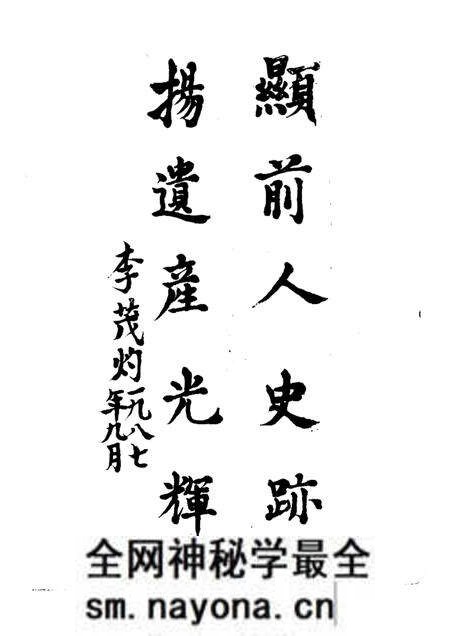 顯前人史跡
揚遺產光輝
李茂灼
一九八七
年九月
全网神秘学最全
sm.nayona.cn